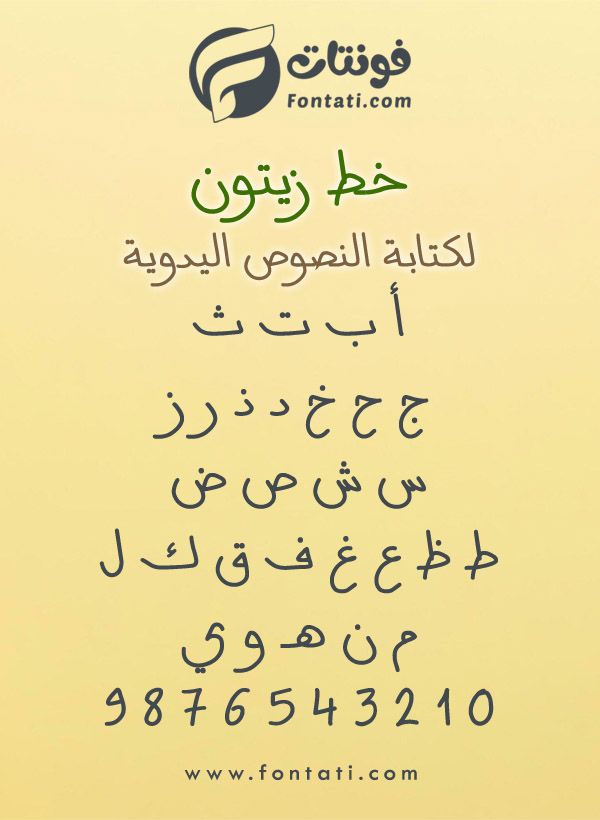 فونتات
Fontati.com
خط زيتون
لكتابة النصوص اليدوية
أ ب ت ث
ج ح خ د ذ ر ز
س ش ص ض
ط ظ ع غ ف ق ك ل
م ن هـ و ي
9 8 7 6 5 4 3 2 1 0
www.fontati.com